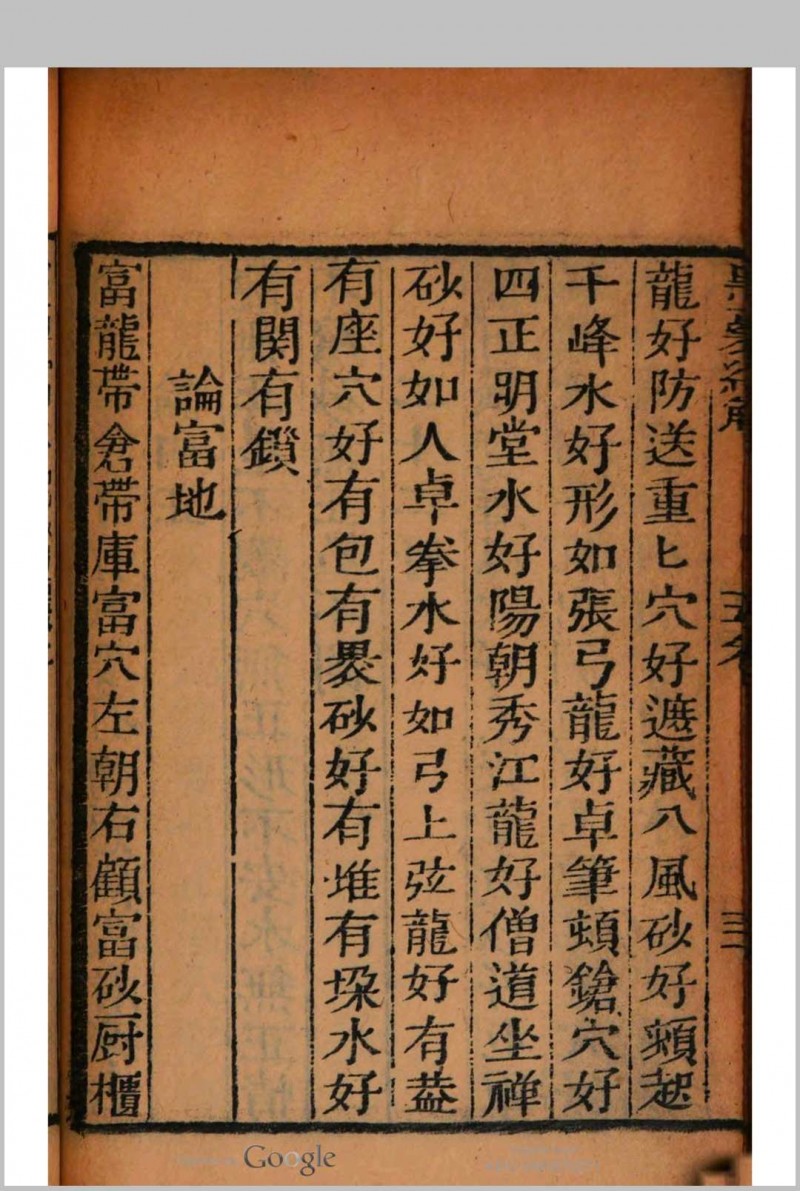 龍好防送重匕穴好遮藏八風砂好頓起
千峰水好形如張弓龍好卓筆頓鎗穴好
四正明堂水好陽朝秀江龍好僧道坐禅
砂好如人卓拳水好如弓上弦龍好有葢
有座穴好有包有褁砂好有堆有垛水好
有関有鎖
論富地
富龍帶倉帶庫富穴左朝右顧富砂厨櫃
Google